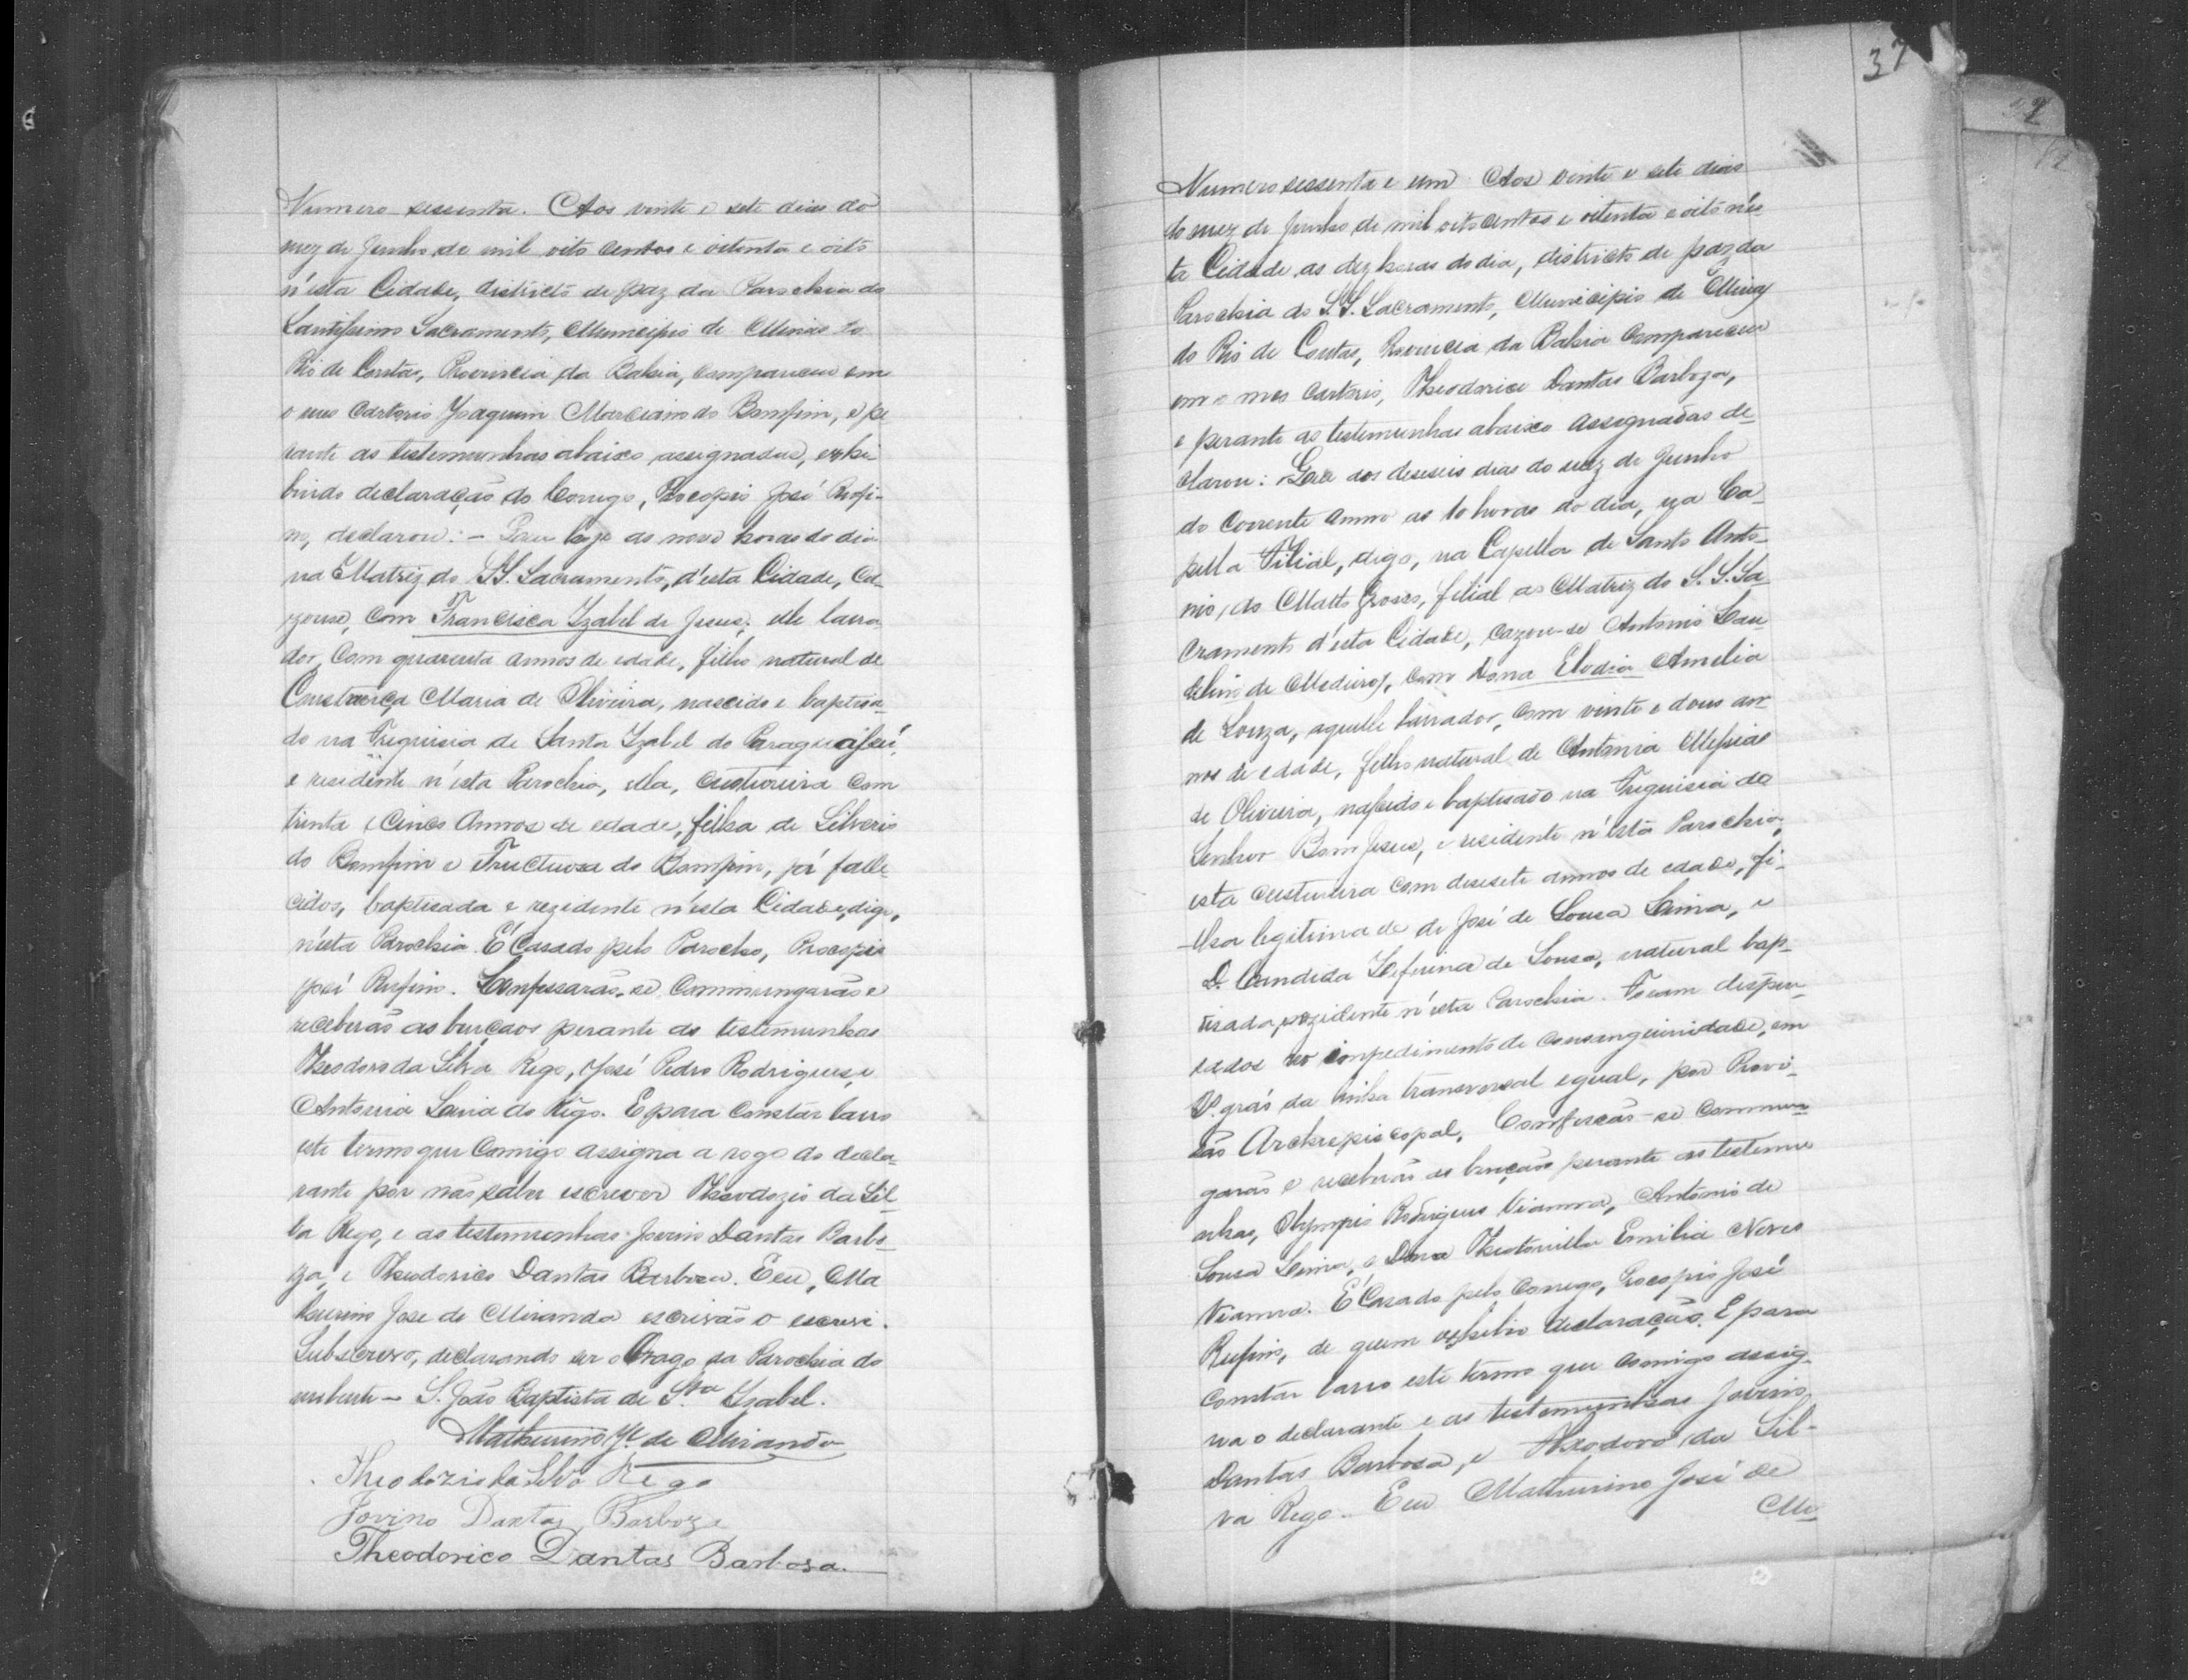 Numero sessenta. Aos vinte e sete dias do
mez de Junho de mil oito centos e oitenta e oito
n'esta Cidade, districto de paz da Parochia do
Santissimo Sacramento, Municipio de Minas do
Rio de Contas, Provincia da Bahia, compareceu em
o meu Cartorio Joaquim Marciano do Bomfim, e pe
rante as testemunhas abaixo assignadas, exhi-
bindo declaração do Conego, Procopio José Rufi-
no, declarou: - Que hoje as nove horas do dia
na Matriz do SS. Sacramento, d'esta Cidade, Ca-
zouse, com Francisca Izabel de Jesus; elle lavra
dor, Com quarenta annos de edade, filho natural de
Constança Maria de Oliveira, nascido e baptisa-
do na Freguisia de Santa Izabel do Paraguassú,
e residente n'esta Parochia, ella, custureira com
trinta e cinco annos de edade, filha de Silverio
do Bomfim e Fructuosa do Bomfim, já falle-
cidos, baptisada e rezidente n'esta Cidade, digo,
n'esta Parochia. E' Casado pelo Parocho, Procopio
José Rufino. Confessarão-se Commungarão e
receberão as bençãos perante as testemunhas
Theodoro da Silva Rego, José Pedro Rodrigues, e
Antonia do Rego. E para Constar lavro
este termo que Comigo assigna a rogo do decla-
rante por não saber escrever Theodozio da Sil
va Rego, e as testemunhas Jovino Dantas Barbo-
za, e Theodorico Dantas Barbosa. E eu, Ma
thurino Jose de Miranda escrivão o escrevi.
Subscrevo, declarando ser o Orago da Parochia do
- S. João Baptista de S.ta Izabel.
Mathurino J.e de Miranda
Theodozio da Silva Rego
Jovino Dantas Barboza
Theodorico Dantas Barbosa.
37
Numero sessenta e um Aos vinte e sete dias
do mez de Junho de mil oito centos e oitenta e oito n'es
ta Cidade as dez horas do dia, districto de paz da
Parochia do S.S. Sacramento, Municipio de Minas
do Rio de Contas, Provincia da Bahia Compareceu
em o meo Cartorio, Theodorico Dantas Barboza,
e perante as testemunhas abaixo assignadas de-
clarou: Que aos deseseis dias do mez de Junho
do Corrente anno as 10 horas do dia, na Ca-
pella Filial, digo, na Capella de Santo Anto-
nio, do Matto Grosso, filial a Matriz do S.S. Sa-
cramento d'esta Cidade, Cazou-se Antonio Lau
delino de Medeiros, com Dona Elodia Amelia
de Souza, aquelle lavrador, com vinte e dous an-
nos de edade, filho natural de Antonia Messias
de Oliveira, nascido e baptisado na Freguisia do
Senhor Bom Jesus, e residente n'esta Parochia,
esta custureira com desesete annos de edade, fi-
lha legitima de de José de Sousa Lima, e
D. Candida Zeferina de Sousa, natural bap-
tisada, rezidente n'esta Parochia. Foram dispen-
sados no impedimento de consanguinidade, em
gráo da linha transversal egual, por Provi-
são Archiepiscopal. Confessão-se Commun-
garão e receberão as bençãos perante as testemu
nhas, Olympio Rodrigues Vianna, Antonio de
Sousa Lima, e Dona Theotonilla Emilia Neves
Vianna. E' Casado pelo Conego, Procopio José
Rufino, de quem exhibio declaração. E para
Constar lavro este termo que Comigo assig-
na o declarante e as testemunhas Jovino
Dantas Barbosa, e Theodoro da Sil-
va Rego. E eu Mathurino José de
Mi-